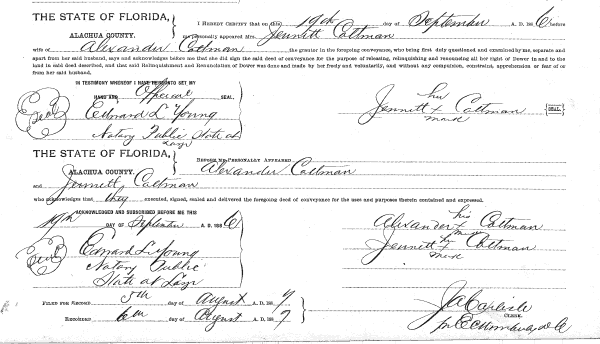 THE STATE OF FLORIDA,
ALACHUA COUNTY.
I HEREBY CERTIFY that on this 19th day of September A. D. 188 6 before
me personally appeared Mrs. Jennett Cattman
wife of Alexander Cattman the grantor in the foregoing conveyance, who being first duly questioned and examined by me, separate and
apart from her said husband, says and acknowledges before me that she did sign the said deed of conveyance for the purpose of releasing, relinquishing and renouncing all her right of Dower in and to the
land in said deed described, and that said Relinquishment and Renunciation of Dower was done and made by her freely and voluntarily, and without any compulsion, constraint, apprehension or fear of or
from her said husband.
IN TESTIMONY WHEREOF I HAVE HERETO SET MY
HAND AND Official SEAL,
Edward L. Young
Notary Public State at
Large
her
Jennett X Cattman
mark
SEAL.
THE STATE OF FLORIDA,
ALACHUA COUNTY.
BEFORE ME PERSONALLY APPEARED Alexander Cattman
and Jennett Cattman
who acknowledges that they executed, signed, sealed and delivered the foregoing deed of conveyance for the uses and purposes therein contained and expressed.
ACKNOWLEDGED AND SUBSCRIBED BEFORE ME THIS
19th DAY OF September A. D. 188 6
Edward L. Young
Notary Public
State at Large
his
Alexander X Cattman
mark
Jennett X Cattman
mark
FILED FOR RECORD 5th day of August A. D. 188 7
RECORDED 6th day of August A. D. 188 7
J A Carlisle
CLERK.